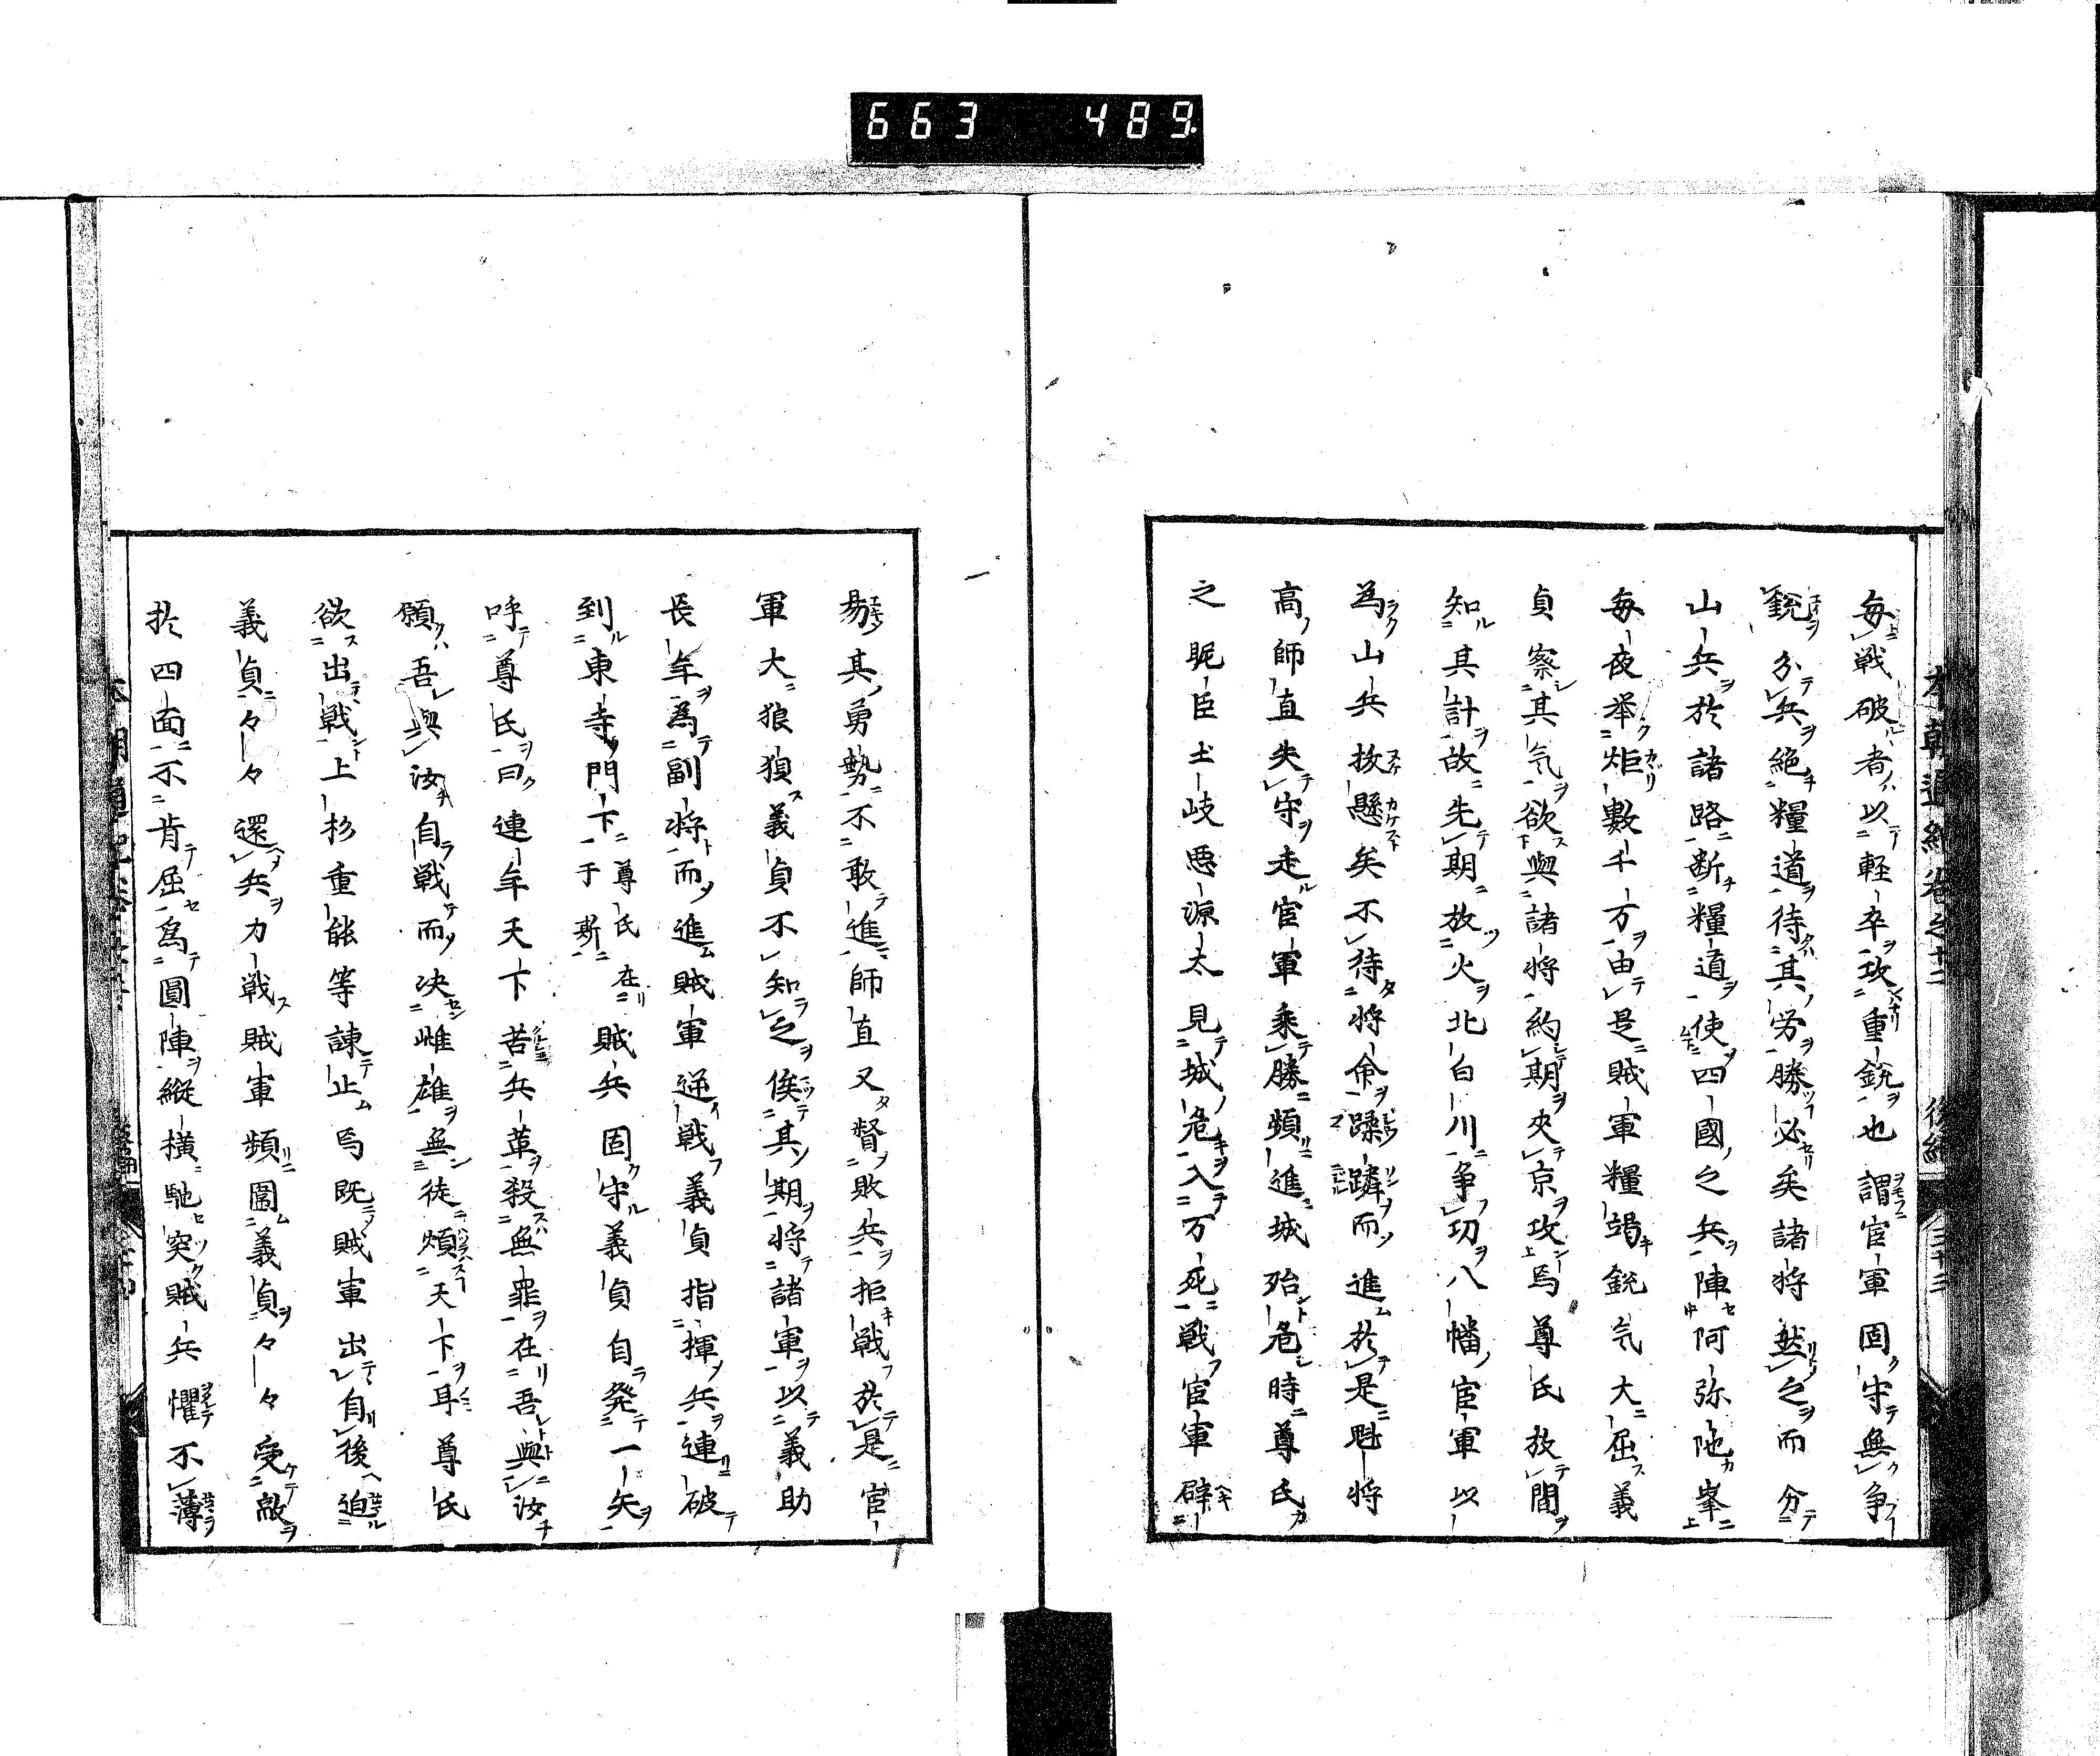 663 489.
毎戦破者以軽卒攻重鋭也謂官軍固守無争
鋭分兵絶糧道待其労勝必矣諸将然之而分
山兵於諸路断糧道使四國之兵陣阿弥陁峯
毎夜举炬數千万由是賊軍糧竭鋭气大屈義
貞察其气欲與諸将約期夾京攻焉尊氏放間
知其計故先期放火北白川争功八幡官軍以
為山兵抜懸矣不待将命蹂躪而進於是魁将
高師直失守走官軍乘勝頻進城殆危時尊氏
之眤臣土岐悪源太見城危入万死戦官軍辟
易其勇勢不敢進師直又督敗兵拒戦於是官
軍大狼狽義貞不知之俟其期将諸軍以義助
長年為副将而進賊軍逆戦義貞指揮兵連破
到東寺門下尊氏在于斯賊兵固守義貞自発一矢
呼尊氏曰連年天下苦兵革殺無罪在吾與汝
願吾與汝自戦而决雌雄無徒煩天下耳尊氏
欲出戦上杉重能等諌止焉既賊軍出自後迫
義貞々々還兵力戦賊軍頻圍義貞々々受敵
於四面不肯屈為圓陣縦横馳突賊兵懼不薄